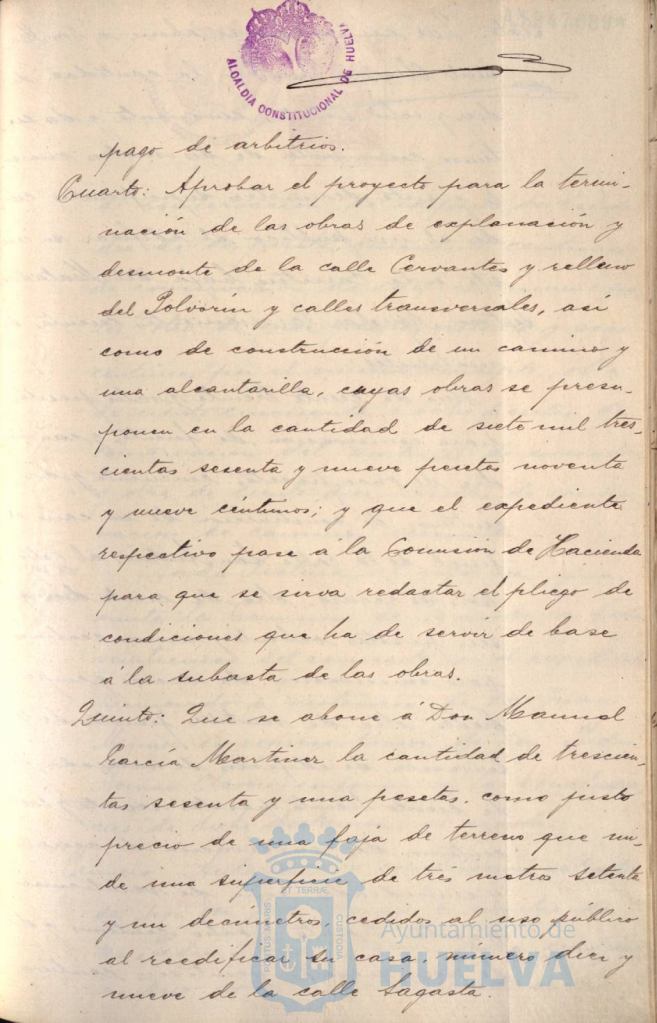 ALCALDIA CONSTITUCIONAL DE HUELVA
pago de arbitrios.
Cuarto: Aprobar el proyecto para la termi-
nación de las obras de explanación y
desmonte de la calle Cervantes y relleno
del Polvorín y calles transversales, así
como de construcción de un camino y
una alcantarilla, cuyas obras se presu-
ponen en la cantidad de siete mil tres-
cientas sesenta y nueve pesetas noventa
y nueve céntimos; y que el expediente
respectivo pase á la Comisión de Hacienda
para que se sirva redactar el pliego de
condiciones que ha de servir de base
á la subasta de las obras.
Quinto: Que se abone á Don Manuel
García Martinez la cantidad de trescien-
tas sesenta y una pesetas, como justo
precio de una faja de terreno que mi-
de una superficie de tres metros setenta
y un decímetros, cedidos al uso público
al reedificar su casa, número diez y
nueve de la calle Sagasta.
PORTUS MARIS ET TERRAE CUSTODIA
Ayuntamiento de
HUELVA